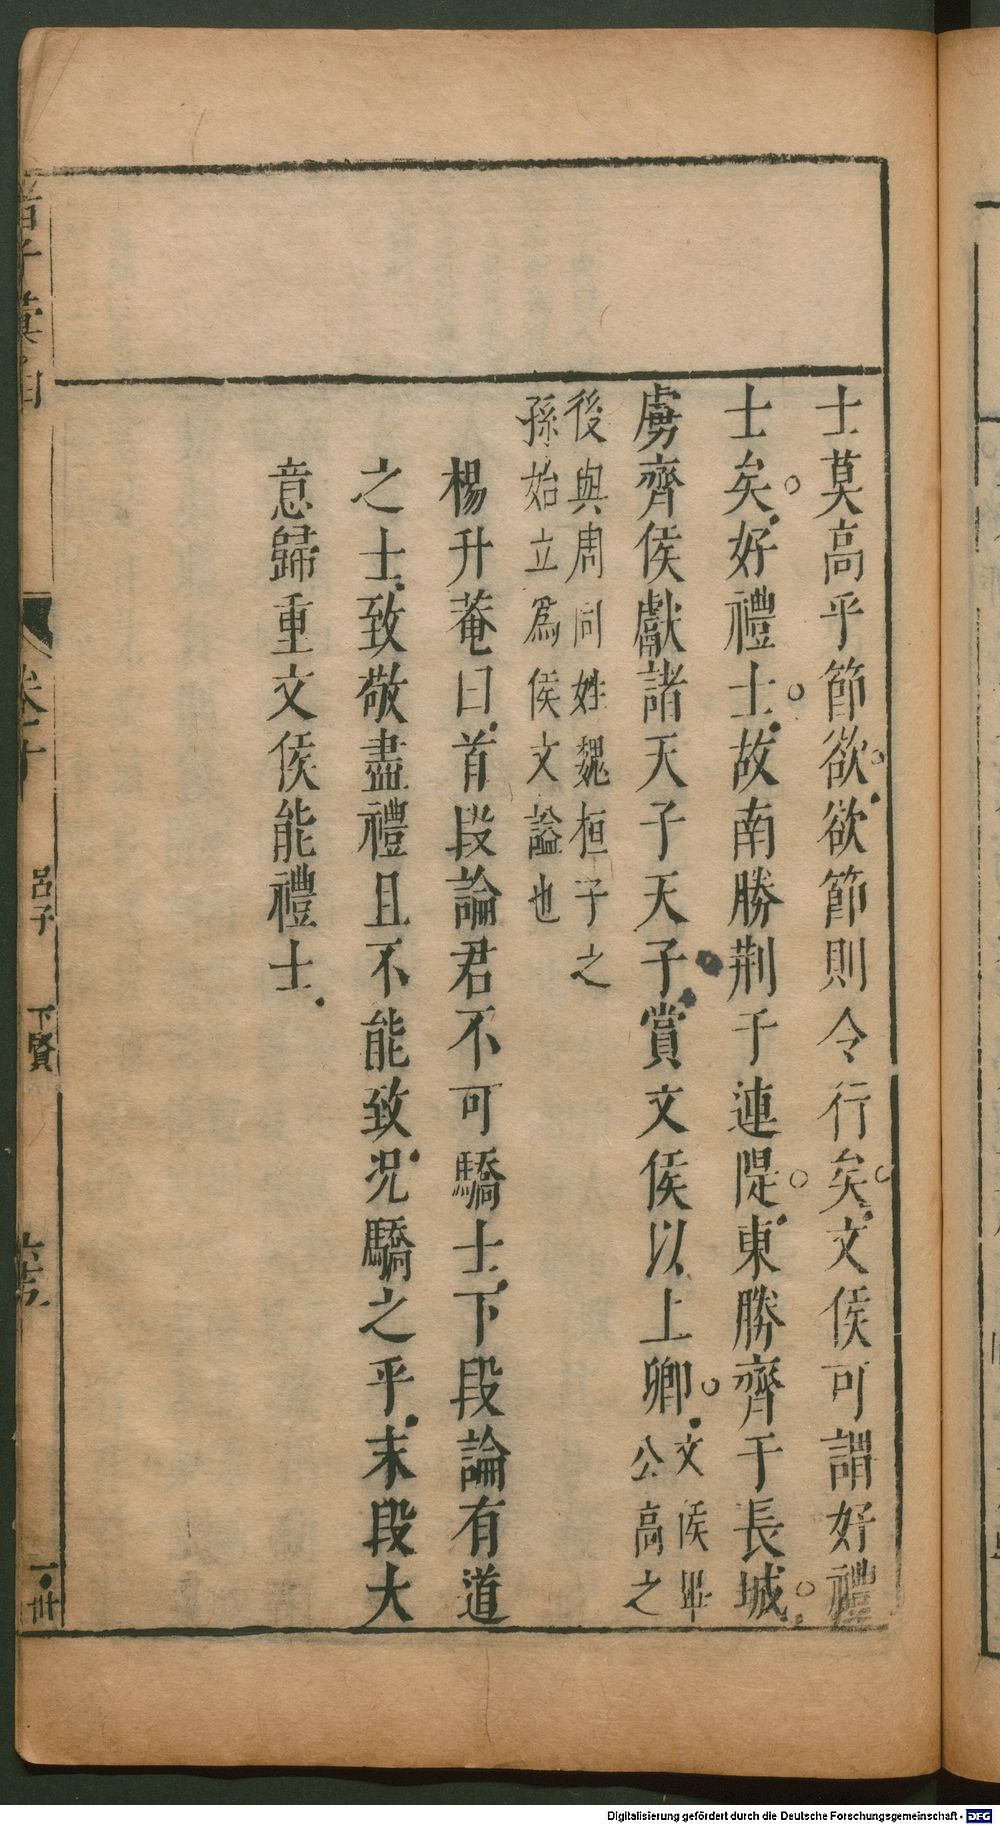 士莫高乎節欲欲節則令行矣文侯可謂好禮
士矣好禮士故南勝荆于連隄東勝齊于長城
虜齊侯獻諸天子天子賞文侯以上卿文侯畢公高之
後與周同姓魏桓子之
孫始立爲侯文謚也
楊升菴曰首段論君不可驕士下段論有道
之士致敬盡禮且不能致况驕之乎末段大
意歸重文侯能禮士
卷十
呂子
下賢
Digitalisierung gefördert durch die Deutsche Forschungsgemeinschaft - DFG